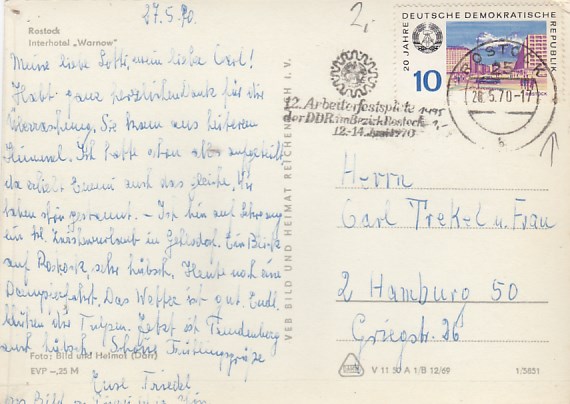 27.5.70.
Rostock
Interhotel „Warnow"
Meine liebe Lotti, mein lieber Carl!
Habt ganz herzlichen Dank für die
Überraschung. Sie kam aus heiterem
Himmel. Ich hatte eben aufgeteilt,
da erlebt Emmi auch das gleiche. Wir
haben gestaunt. – Ich bin auf
in Gehlsdorf. Ein Blick
auf Rostock, sehr hübsch. Heute noch eine
Dampferfahrt. Das Wetter ist gut. Endl.
blühen die Tulpen. Jetzt ist
auch hübsch. Schöne Frühlingsgrüße
Foto: Bild und Heimat (Dorr)
EVP –,25 M
Eure Friedel
VEB BILD UND HEIMAT REICHENBACH I. V.
2,-
20 JAHRE DEUTSCHE DEMOKRATISCHE REPUBLIK
10
ROSTOCK
ROSTOCK
25
28.5.70-17
12. Arbeiterfestspiele
der DDR im Bezirk Rostock
12.-14. Juni 1970
Herrn
Carl Trekel u. Frau
2 Hamburg 50
Griegstr. 26
V 11 50 A 1/B 12/69
1/5851